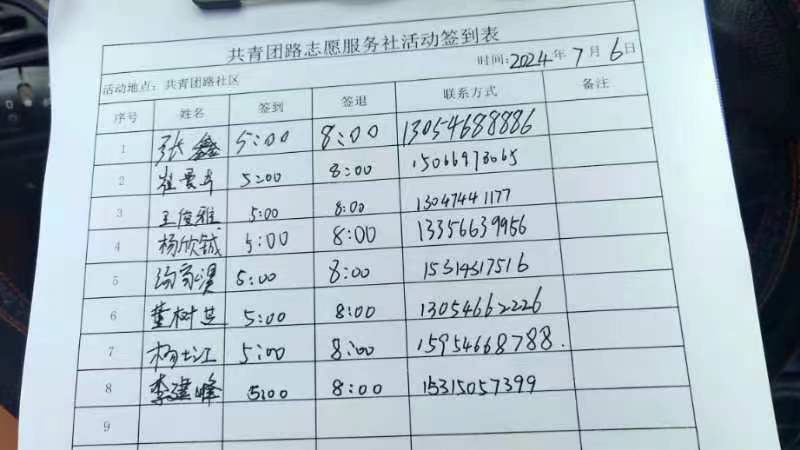 共青团路志愿服务社活动签到表
活动地点：共青团路社区 时间：2024年7月6日
序号 姓名 签到 签退 联系方式 备注
1 张鑫 5:00 8:00 13054688886
2 崔景 5:00 8:00 15066973065
3 王俊雅 5:00 8:00 13047441177
4 杨欣铖 5:00 8:00 13356639956
5 5:00 8:00 15314317516
6 董树芝 5:00 8:00 13054662226
7 杨 5:00 8:00 15954668788.
8 李建峰 5:00 8:00 15315057399
9